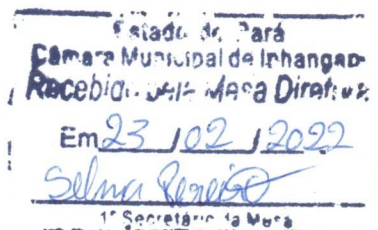 Estado do Pará
Câmara Municipal de Inhangap
Recebido pela Mesa Diretiva
Em 23 / 02 / 2022
Selma Pereira
1º Secretário da Mesa